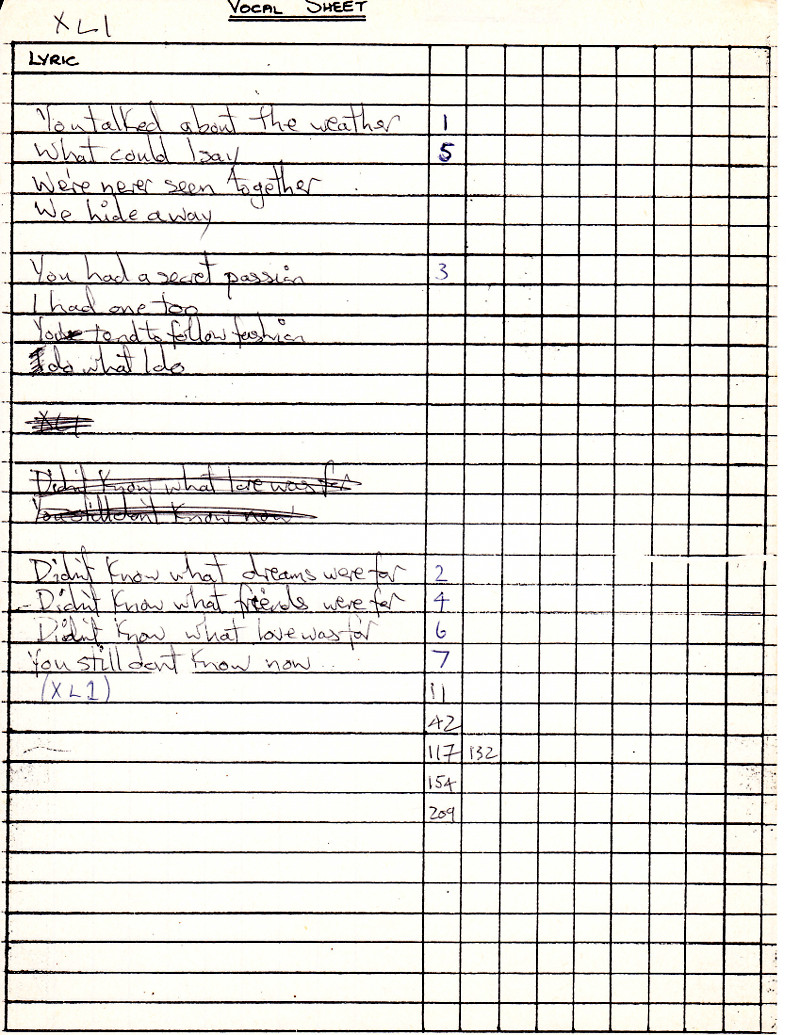 VOCAL SHEET
XL1
LYRIC
You talked about the weather 1
What could I say 5
We're never seen together
We hide away
You had a secret passion 3
I had one too
You tend to follow fashion
I do what I do
XL1
Didn't know what love was for
You still don't know now
Didn't know what dreams were for 2
- Didn't know what friends were for 4
Didn't know what love was for 6
You still dont know now... 7
(XL1) 11
42
117 132
154
209